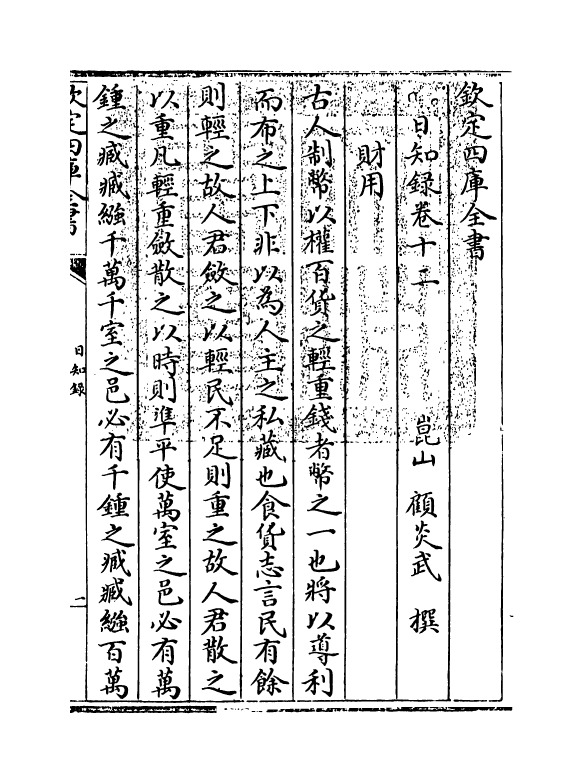 欽定四庫全書
日知錄卷十二
崑山 顧炎武 撰
財用
古人制幣以權百貨之輕重錢者幣之一也將以導利
而布之上下非以為人主之私藏也食貨志言民有餘
則輕之故人君斂之以輕民不足則重之故人君散之
以重凡輕重斂散之以時則準平使萬室之邑必有萬
鍾之臧臧繦千萬千室之邑必有千鍾之臧臧繦百萬
欽定四庫全書
日知錄
二